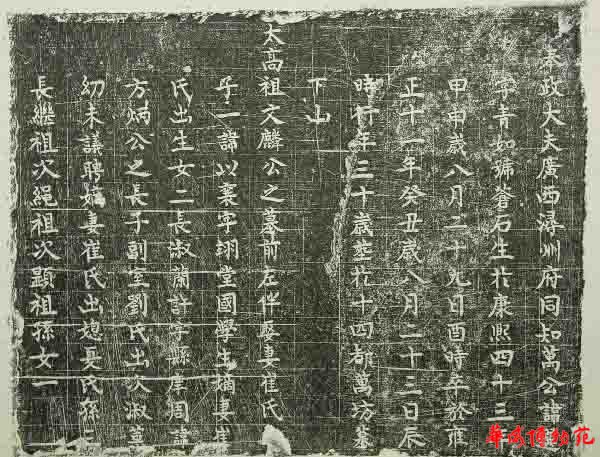 奉政大夫廣西潯州府同知萬公諱
字青如號蒼石生於康熙四十三
甲申歲八月二十九日酉時卒於雍
正十一年癸丑歲八月二十三日辰
時行年三十歲塟於十四都萬坊墓
下山
太高祖文麟公之墓前左伴娶妻崔氏
子一諱以襄字翊堂國學生嫡妻崔
氏出生女二長淑蘭許字縣庠周諱
方炳公之長子副室劉氏出次淑
幼未議聘嫡妻崔氏出媳夏氏孫三
長繼祖次繩祖次顯祖孫女一
華成博物苑